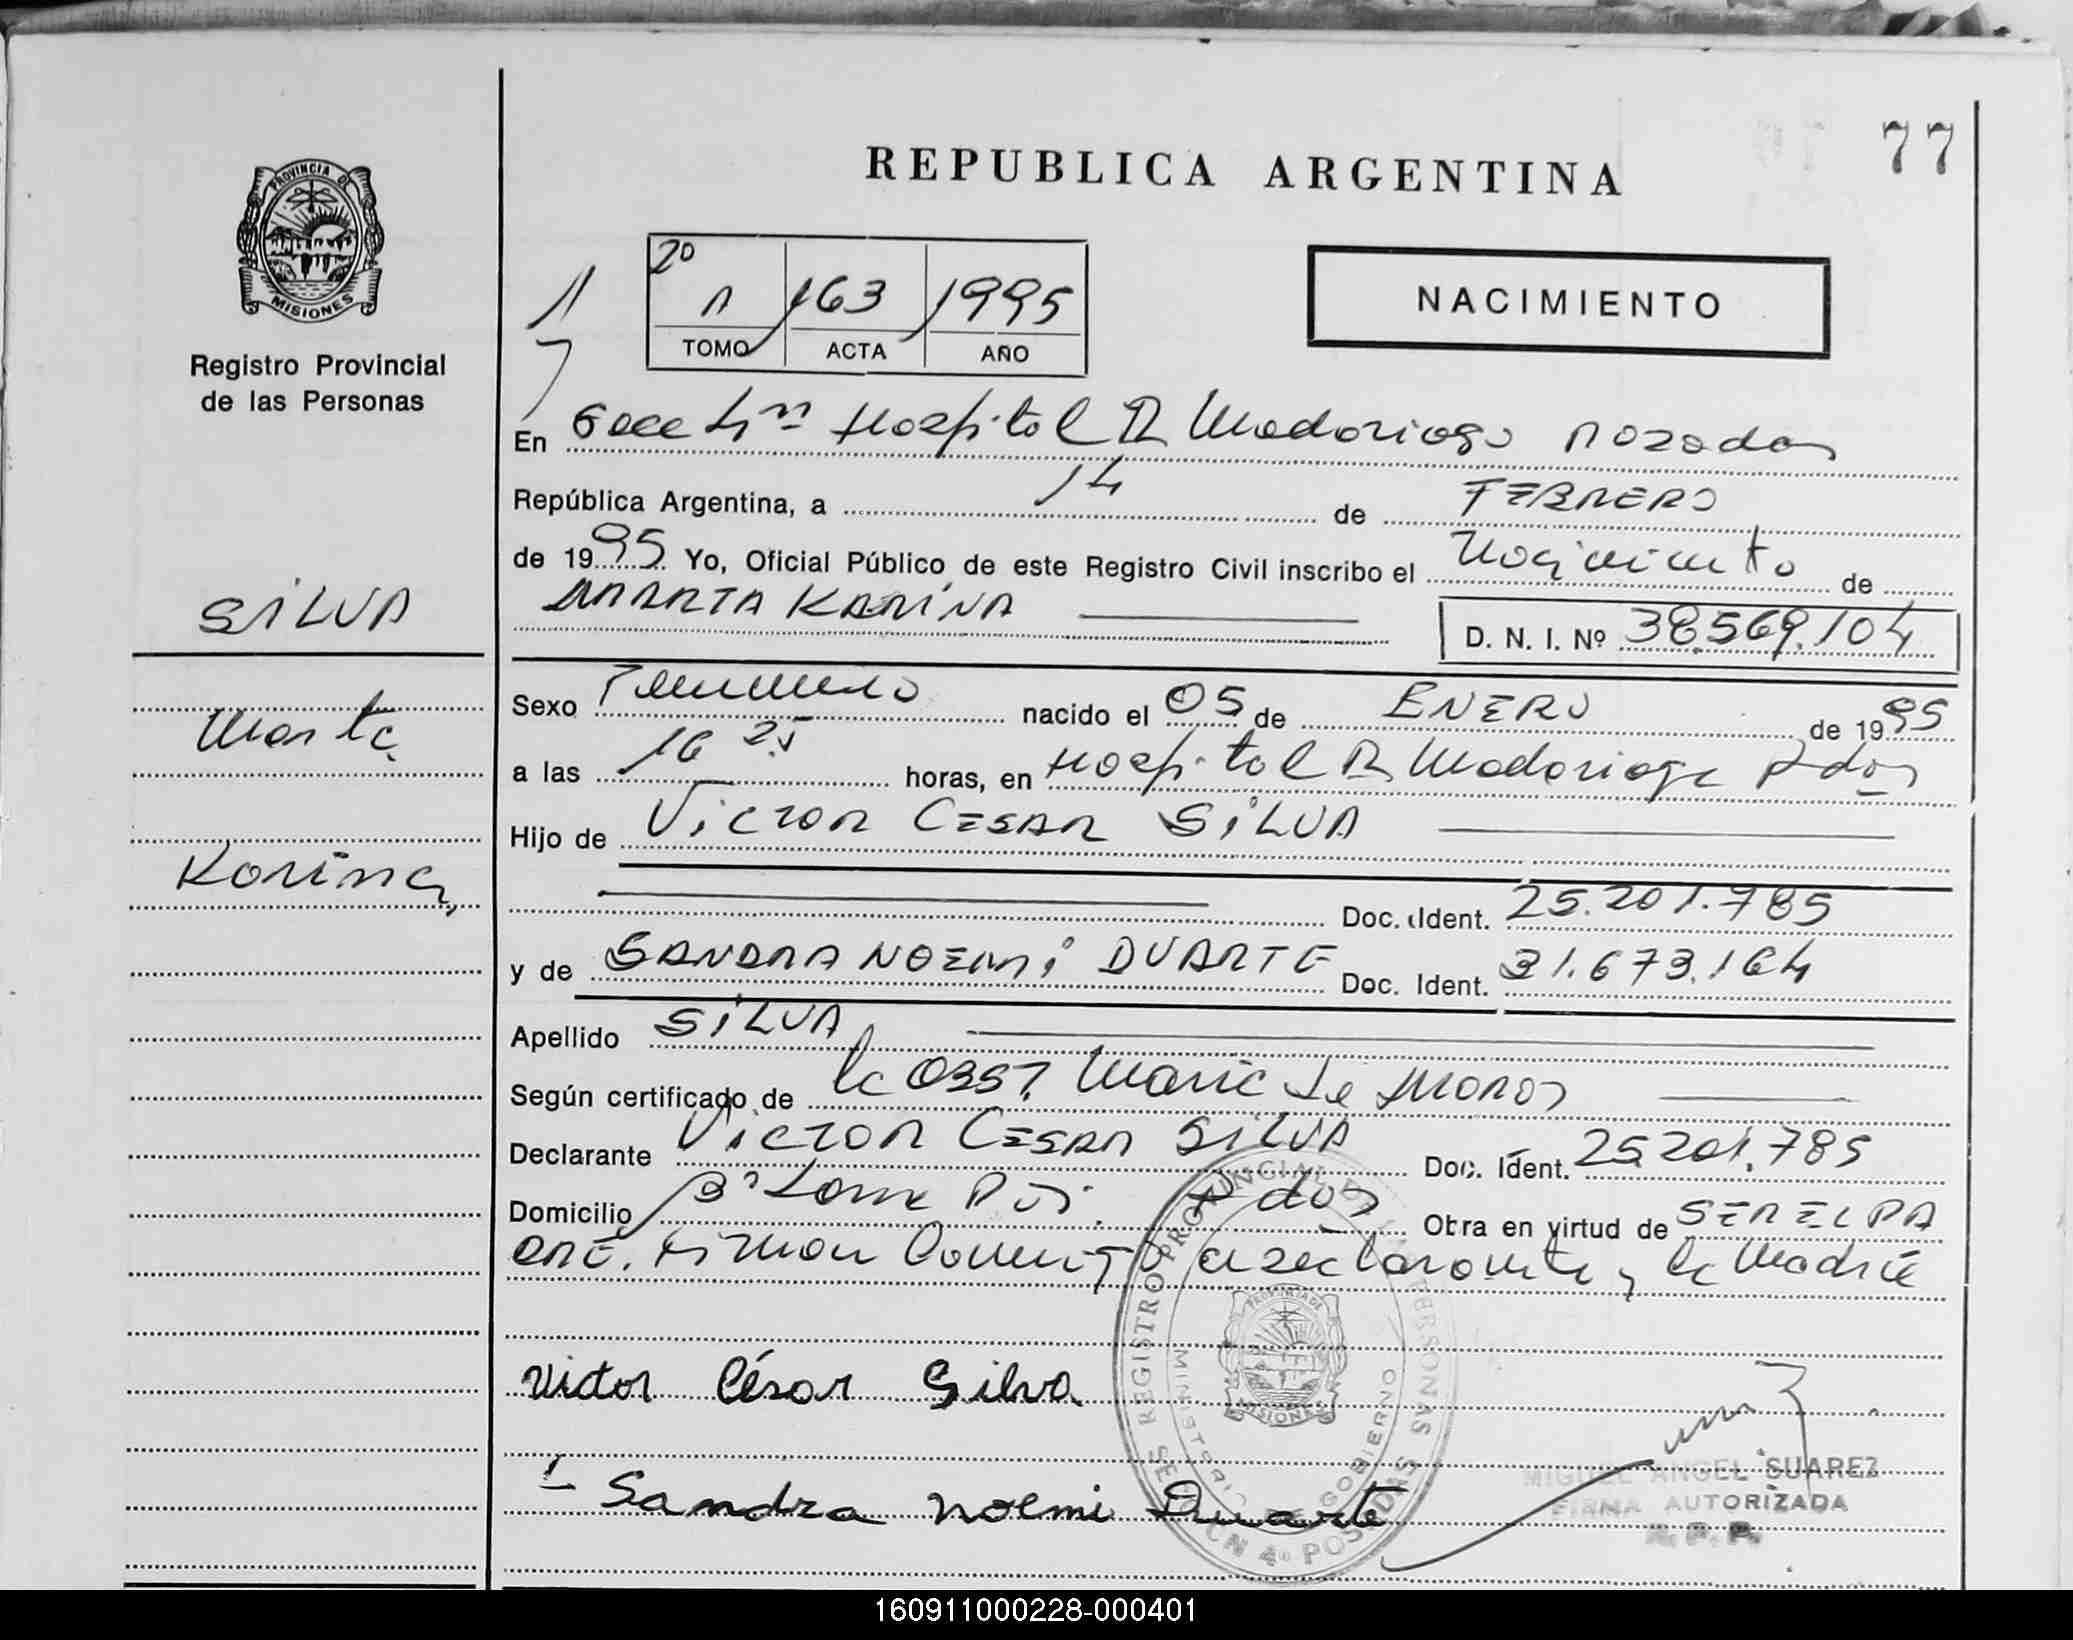 REPUBLICA ARGENTINA
77
PROVINCIA DE
MISIONES
Registro Provincial
de las Personas
2º
1 163 1995
TOMO ACTA AÑO
NACIMIENTO
En Secc 4ta Hospital R Madariaga Posadas
República Argentina, a 14 de FEBRERO
de 1995 Yo, Oficial Público de este Registro Civil inscribo el Nacimiento de
MARTA KARINA D. N. I. Nº 38.569.104
SILVA
Marta
Karina
Sexo Femenino nacido el 05 de ENERO de 1995
a las 16 25 horas, en Hospital R Madariaga Pdas
Hijo de VICTOR CESAR SILVA
Doc. Ident. 25.201.785
y de SANDRA NOEMI DUARTE Doc. Ident. 31.673.164
Apellido SILVA
Según certificado de la Obst. Maria de
Declarante VICTOR CESAR SILVA Doc. Ident. 25.201.785
Domicilio Bº Pdas Obra en virtud de SER EL PA
DRE. Firman Conmigo el declarante y la Madre
Victor César Silva
Sandra Noemi Duarte
REGISTRO PROVINCIAL DE LAS PERSONAS
MINISTERIO DE GOBIERNO
PROVINCIA DE
MISIONES
SECCN 4º POSADAS
MIGUEL ANGEL SUAREZ
FIRMA AUTORIZADA
R. P. P.
160911000228-000401